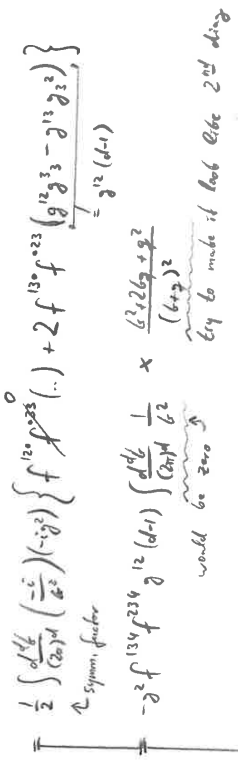 = 1/2 ∫ d^d k/(2π)^d (-i/k²)(-ig²) { f^{120} f^{033} (...) + 2 f^{130} f^{023} (g^{12} g^{33} - g^{13} g^{32}) }
0
↑ symm. factor
= g^{12} (d-1)
= -g² f^{134} f^{234} g^{12} (d-1) ∫ d^d k/(2π)^d 1/k² × k²+2kq+q² / (k+q)²
would be zero ↗
try to make it look like 2nd diag